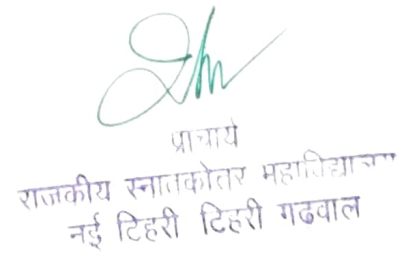 प्राचार्य
राजकीय स्नातकोतर महाविद्यालय
नई टिहरी टिहरी गढवाल